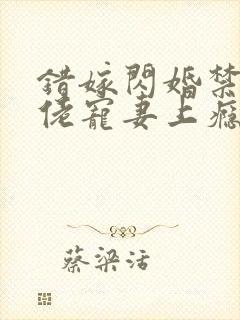 錯嫁閃婚禁
佬寵妻上癮
蔡梁活